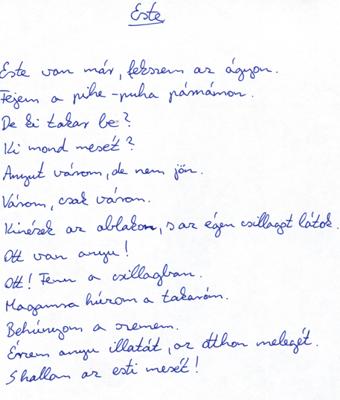 Este
Este van már, fekszem az ágyon.
Fejem a pihe-puha párnámon.
De ki takar be?
Ki mond mesét?
Anyut várom, de nem jön.
Várom, csak várom.
Kinézek az ablakon, s az égen csillagot látok.
Ott van anyu!
Ott! Fenn a csillagban.
Magamra húzom a takaróm.
Behúnyom a szemem.
Érzem anyu illatát, az otthon melegét.
S hallom az esti mesét!